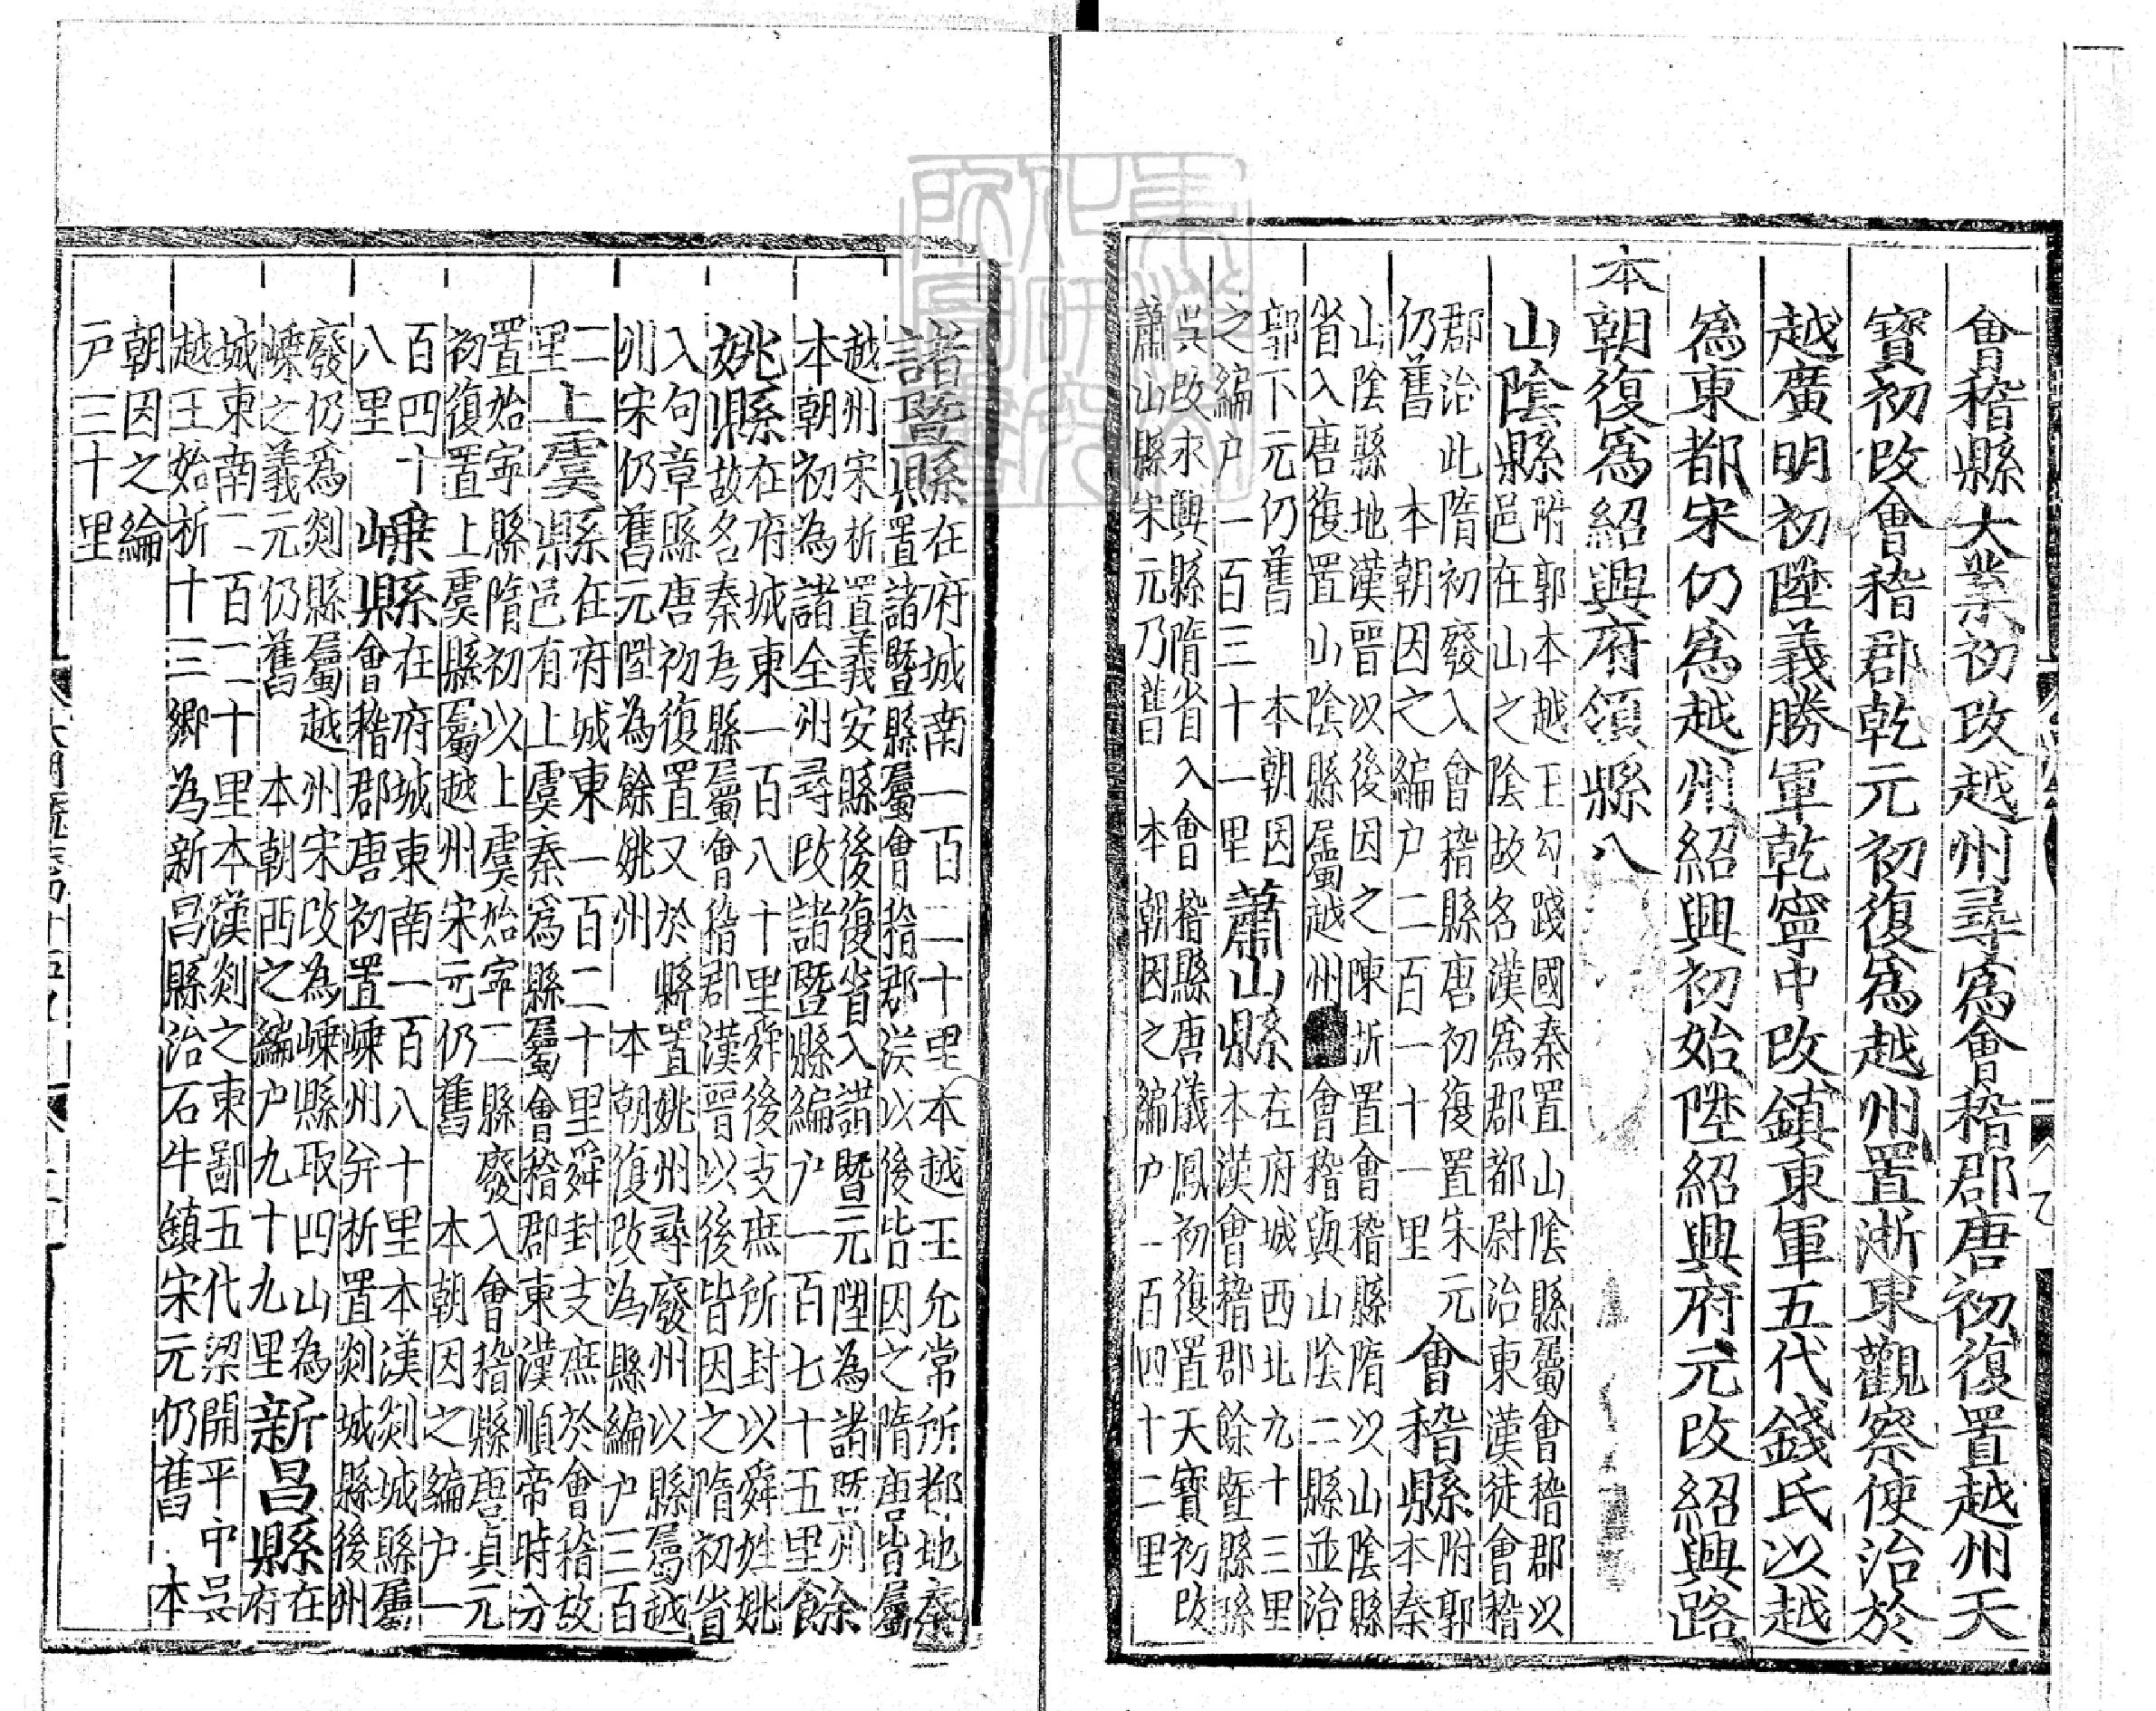 會稽縣大業初改越州尋爲會稽郡唐初復置越州天
寶初改會稽郡乾元初復爲越州置浙東觀察使治於
越廣明初陞義勝軍乾寧中改鎮東軍五代錢氏以越
爲東都宋仍爲越州紹興初始陞紹興府元改紹興路
本朝復爲紹興府領縣八
山陰縣
附郭本越王勾踐國秦置山陰縣屬會稽郡以
邑在山之陰故名漢爲郡都尉治東漢徙會稽
郡治此隋初廢入會稽縣唐初復置宋元
仍舊 本朝因之編户二百一十一里
會稽縣
附郭
本秦
山陰縣地漢晉以後因之陳析置會稽縣隋以山陰縣
省入唐復置山陰縣屬越州 會稽與山陰二縣並治
郭下元仍舊 本朝因
之編户一百三十一里
蕭山縣
在府城西北九十三里
本漢會稽郡餘暨縣孫
吳改永興縣隋省入會稽縣唐儀鳳初復置天寶初改
蕭山縣宋元乃舊 本朝因之編户一百四十二里
諸暨縣
在府城南一百二十里本越王允常所都地秦
置諸暨縣屬會稽郡漢以後皆因之隋唐皆屬
越州宋析置義安縣後復省入諸暨元陞為諸暨州
本朝初為諸全州尋改諸暨縣編户一百七十五里
餘
姚縣
在府城東一百八十里舜後支庶所封以舜姓姚
故名秦爲縣屬會稽郡漢晉以後皆因之隋初省
入句章縣唐初復置又於縣置姚州尋廢州以縣屬越
州宋仍舊元陞為餘姚州 本朝復改為縣編户三百
二
里
上虞縣
在府城東一百二十里舜封支庶於會稽故
邑有上虞秦爲縣屬會稽郡東漢順帝時分
置始寧縣隋初以上虞始寧二縣廢入會稽縣唐貞元
初復置上虞縣屬越州宋元仍舊 本朝因之編户一
百四十
八里
嵊縣
在府城東南一百八十里本漢剡城縣屬
會稽郡唐初置嵊州并析置剡城縣後州
廢仍爲剡縣屬越州宋改為嵊縣取四山為
嵊之義元仍舊 本朝西之編户九十九里
新昌縣
在
府
城東南二百二十里本漢剡之東鄙五代梁開平中吳
越王始析十三鄉為新昌縣治石牛鎮宋元仍舊 本
朝因之編
户三十里